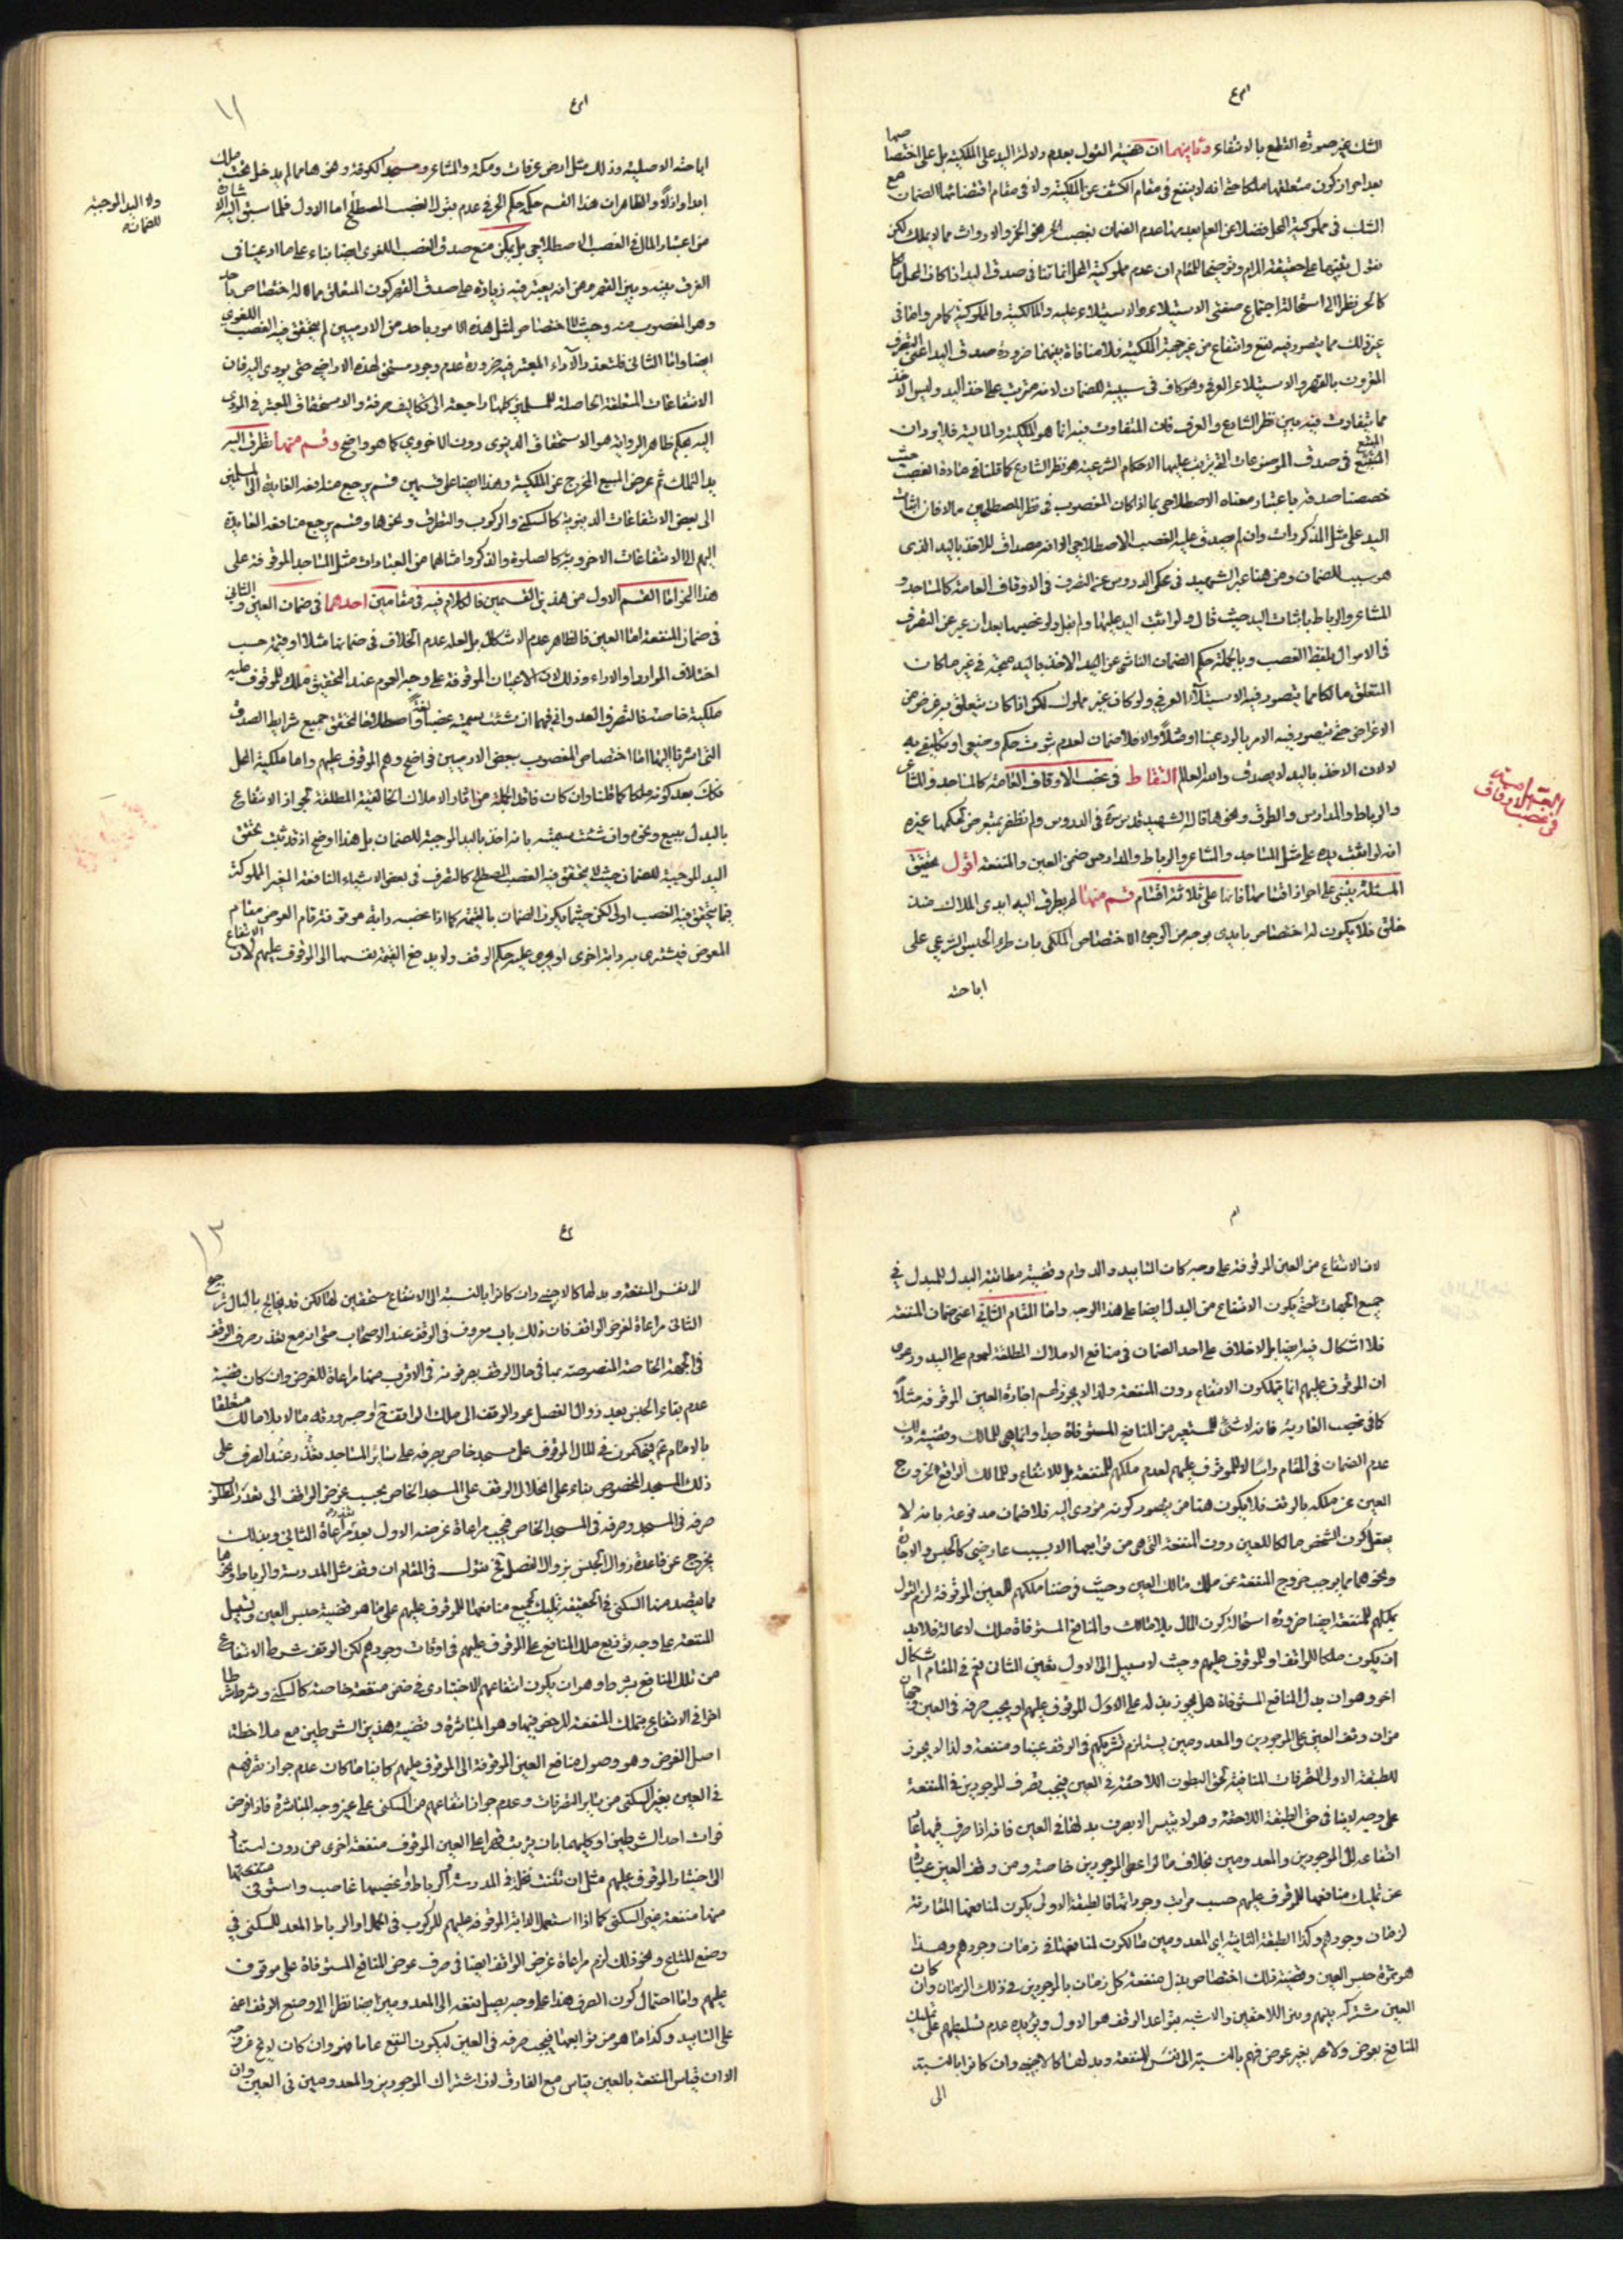 الشك غير صورة القطع بالانتفاء وثانيهما ان قضية القول بعدم دلالة اليد على الملكية بل على اختصاصها
الشك في مملوكية المحل فضلا عن العلم بعدمها عدم الضمان بغصب الخمر والارواث مما لا يملك لكن
نقول
كالحر نظرا الى استحالة اجتماع صفتي الاستيلاء والاستيلاء عليه والمالكية والمملوكية كما مر واما في
غير ذلك مما يتصور فيه نفع وانتفاع من غير جهة الملكية فلا منافاة بينهما ضرورة صدق اليد اعني التصرف
المقرون بالقهر والاستيلاء العرفي وهو كاف في سببية الضمان لانه مترتب على اخذ اليد وليس الاخذ
مما يتفاوت فيه بين نظر الشارع والعرف فان المتفاوت فيه انما هو الملكية والمالية فلا يرد ان
المتبع في صدق الموضوعات التي يترتب عليها الاحكام الشرعية هو نظر الشارع كما قلنا في مادة الغصب حيث
خصصنا صدقه باعتبار معناه الاصطلاحي بما اذا كان المغصوب في نظر المصطلحين مالا فان اثبات
اليد على مثل المذكورات وان لم يصدق عليه الغصب الاصطلاحي الا انه مصداق للاخذ باليد الذي
هو سبب للضمان ومن هنا عبر الشهيد في محكي الدروس عن التصرف في الاوقاف العامة كالمساجد و
المشاعر والرباط باثبات اليد حيث قال ولو اثبت اليد عليها ولم يقل ولو غصبها بعد ان عبر عن التصرف
في الاموال بلفظ الغصب وبالجملة حكم الضمان الناشي عن اليد الاخذ باليد صحيحة في غير ما كان
المتعلق مالكا مما يتصور فيه الاستيلاء العرفي ولو كان غير مملوك لكن اذا كان يتعلق به غرض من
الاغراض حتى يتصور فيه الامر بالرد عينا او مثلا والا فلا ضمان لعدم ثبوت حكم وضعي او تكليفي به
لا لان الاخذ باليد لا يصدق والله العالم التقاط في غصب الاوقاف العامة كالمساجد والمشاعر
والرباط والمدارس والطرق ونحوها قال الشهيد قدس سره في الدروس ولم نظفر بمتعرض لحكمها غيره
انه لو اثبت يده على مثل المساجد والمشاعر والرباط والمدارس ضمن العين والمنفعة اقول تحقيق
المسئلة يبتني على احراز اقسامها فانها على ثلاثة اقسام قسم منها لم يطرق اليه ايدي الملاك منذ
خلق فلا يكون له اختصاص بايدي بوجه من الوجوه الاختصاص الملكي بان طرء الحبس الشرعي على
اباحته
اباحته الاصلية وذلك مثل ارض عرفات ومكة والمشاعر ومسجد الكوفة ونحوها مما لم يدخل تحت ملك
ابدا والظاهر ان هذا القسم حكمه حكم الحر في عدم قبول الغصب المصطلح اما الاول فلما سبق اليه الاشارة
من اعتبار المال في الغصب الاصطلاحي بل يمكن منع صدق الغصب اللغوي ايضا بناء على ما ادعينا في
الفرق بينه وبين القهر من انه يعتبر فيه زيادة على صدق القهر كون المتعلق مما له اختصاص باحد
وهو المغصوب منه وحيث لا اختصاص لمثل هذه الامور باحد من الادميين لم يتحقق فيه الغصب اللغوي
ايضا واما الثاني فلتعذر الآداء المعتبر فيه ضرورة عدم وجود مستحق لهذه الاراضي حتى يودى اليه فان
الانتفاعات المتعلقة الحاصلة للمسلمين كلها راجعة الى تكاليف صرفة والاستحقاق المعتبر في المودى
اليه بحكم ظاهر الرواية هو الاستحقاق الدنيوي دون الاخروي كما هو واضح وقسم منها تطرق اليه
يد التملك ثم عرض المسبع المخرج عن الملكية وهذا ايضا على قسمين قسم يرجع منافعه الغايية الى المسلمين
الى بعض الانتفاعات الدنيوية كالسكنى والركوب والتطرق ونحوها وقسم يرجع منافعه الغايية
اليهم الى الانتفاعات الاخروية كالصلوة والذكر وامثالهما من العبادات مثل المساجد الموقوفة على
هذا النحو اما القسم الاول من هذين القسمين فالكلام فيه في مقامين احدهما في ضمان العين والثاني
في ضمان المنفعة اما العين فالظاهر عدم الاشكال بل لعله عدم الخلاف في ضمانها مثلا او قيمة حسب
اختلاف الموارد او الاداء وذلك لان الاعيان الموقوفة على وجه العموم عند التحقيق ملك للموقوف عليه
ملكية خاصة فالتصرف العدواني فيها ان شئت سميته غصبا لغة واصطلاحا لتحقق جميع شرايط الصدق
التي اشرنا اليها اما اختصاص المغصوب ببعض الادميين فواضح وهم الموقوف عليهم واما ملكية المحل
فكك بعد كونه ملكا كما قلنا وان كان فاقدا لجملة من آثار الاملاك الخاصية المطلقة كجواز الانتفاع
بالبدل ببيع ونحوه وان شئت سميته بانه اخذ باليد الموجبة للضمان بل هذا اوضح اذ قد ثبت تحقق
اليد الموجبة للضمان حيث لا يتحقق فيه الغصب المصطلح كالتصرف في بعض الاشياء النافعة الغير المملوكة
فما يتحقق فيه الغصب اولى لكن حيثما يكون الضمان بالقيمة كما اذا غصب دابة موقوفة قام العوض مقام
المعوض فيشترى به دابة اخرى او يجري عليه حكم الوقف ولا يدفع القيمة بقسمها الى الموقوف عليهم لان الانتفاع
ولا اليد الموجبة
للضمان
لان الانتفاع من العين الموقوفة على وجه كان التابيد والدوام وقضية مطابقة البدل للمبدل في
جميع الجهات حتى يكون الانتفاع من البدل ايضا على هذا الوجه واما المقام الثاني اعني ضمان المنفعة
فلا اشكال فيه ايضا بل لا خلاف على احد الضمان في منافع الاملاك المطلقة لعموم على اليد ودعوى
ان الموقوف عليهم انما يتملكون الانتفاع دون المنفعة ولذا لا يجوز لهم اجارة العين الموقوفة مثلا
كما في غصب العارية فانه لا شئ للمستعير من المنافع المستوفاة جدا وانما هي للمالك وقضية ذلك
عدم الضمان في المقام راسا لا للموقوف عليهم لعدم ملكهم للمنفعة بل للانتفاع ولا للمالك الواقع لخروج
العين عن ملكه بالوقف فلا يكون هنا من يتصور كونه مؤدى اليه فلا ضمان مدفوعة بانه لا
يعقل كون الشخص مالكا للعين دون المنفعة التي هي من توابعها الا بسبب عارضي كالحبس والاجارة
ونحوهما مما يوجب خروج المنفعة عن ملك مالك العين وحيث فرضنا ملكهم للعين الموقوفة لزم القول
بملكهم للمنفعة ايضا ضرورة استحالة كون المال بلا مالك والمنافع المستوفاة ملك لا محالة فلا بد
ان يكون ملكا للواقف او للموقوف عليهم وحيث لا سبيل الى الاول تعين الثاني نعم في المقام اشكال
اخر وهو ان بدل المنافع المستوفاة هل يجوز بذله على الاول للموقوف عليهم او يجب صرفه في العين وجهان
من ان وقف العين على الموجودين والمعدومين يستلزم تشريكهم في الوقف عينا ومنفعة ولذا لا يجوز
للطبقة الاولى التصرفات المنافية لحق البطون اللاحقة في العين فيجب تصرف الموجودين في المنفعة
على وجه لا ينافي حق الطبقة اللاحقة وهو لا يتيسر الا بصرف بدلها في العين فانه اذا صرف فيها عاد
انتفاعه الى الموجودين والمعدومين بخلاف ما لو اعطى الموجودين خاصة ومن وقف العين عبارة
عن تمليك منافعها للموقوف عليهم حسب مراتب وجودها فالطبقة الاولى يكون لمنافعها المقارنة
لزمان وجودهم وكذا الطبقة الثانية اي المعدومين مالكون لمنافعها في زمان وجودهم وهذا
هو ثمرة حبس العين وقضية ذلك اختصاص بدل منفعة كل زمان بالموجودين في ذلك الزمان وان كان
العين مشتركة بينهم وبين اللاحقين والاشبه بقواعد الوقف هو الاول ويؤيده عدم تسليطهم على تمليك
المنافع بعوض ولا بغير عوض فهم بالنسبة الى نفس المنفعة وبدلها كالاجنبي وان كانوا بالنسبة
الى
الى نفس المنفعة وبدلها كالاجنبي وان كانوا بالنسبة الى الانتفاع مستحقين لها لكن قد يخالج بالبال ترجيح
الثاني مراعاة لغرض الواقف فان ذلك باب معروف في الوقف عند الاصحاب حتى انه مع تعذر صرف الوقف
في الجهة الخاصة المنصوصة يصرفونه في الاقرب منها مراعاة للغرض وان كان قضية
عدم بقاء الحبس بعد زوال الفصل عود الوقف الى ملك الواقف او ورثته
بالامام ثم يحكمون في المال الموقوف على مسجد خاص بصرفه على سائر المساجد بتعذر الصرف على
ذلك المسجد المخصوص بناء على انحلال الوقف على المسجد الخاص بحسب غرض الواقف الى تعدد المطلوب
صرفه في المسجد وصرفه في المسجد الخاص فيجب مراعاة غرضه الاول بعد تعذر مراعاة الثاني وبذلك
يخرج عن قاعدة زوال الجنس بزوال الفصل فح نقول في المقام ان وقف مثل المدرسة والرباط ونحوها
ما يقصد منه السكنى في الحقيقة تمليك لجميع منافعها للموقوف عليهم على ما هو قضية حبس العين وتسبيل
المنفعة على وجه توزيع ملك المنافع على الموقوف عليهم في اوقات وجودهم لكن الوقف شرط الانتفاع
من تلك المنافع بشرط وهو ان يكون انتفاعهم الاختياري في ضمن منفعة خاصة كالسكنى وشرط شرطا
اخر في الانتفاع بتلك المنفعة المرخص فيها وهو المباشرة وقضية هذين الشرطين مع ملاحظة
اصل الغرض وهو وصول منافع العين الموقوفة الى الموقوف عليهم كائنا ما كان عدم جواز تصرفهم
في العين بغير السكنى من سائر التصرفات وعدم جواز انتفاعهم من السكنى على غير وجه المباشرة فاذا فرض
فوات احد الشرطين او كليهما بان ترتب قهرا على العين الموقوف منفعة اخرى من دون استناد
الى اختيار الموقوف عليهم مثل ان نبتت نخلة في المدرسة او الرباط او غصبها غاصب واستوفى منفعتها
منها منفعة غير السكنى كما اذا استعمل الدابة الموقوفة عليهم للركوب في الحمل او الرباط المعد للسكنى في
وضع المتاع ونحو ذلك لزم مراعاة غرض الواقف ايضا في صرف عوض المنافع المستوفاة على موقوف
عليهم واما احتمال كون الصرف هذا على وجه يصل نفعه الى المعدومين ايضا نظرا الى وضع الوقف اعني
على التابيد وكذا ما هو من توابعها فيجب صرفه في العين ليكون النفع عاما فهو وان كان لا يخ عن وجه
الا ان قياس المنفعة بالعين قياس مع الفارق لان اشتراك الموجودين والمعدومين في العين وان